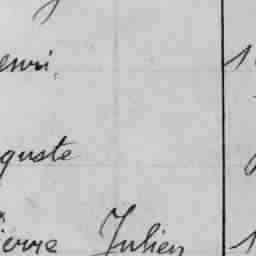 enri
guste
ierre Julien